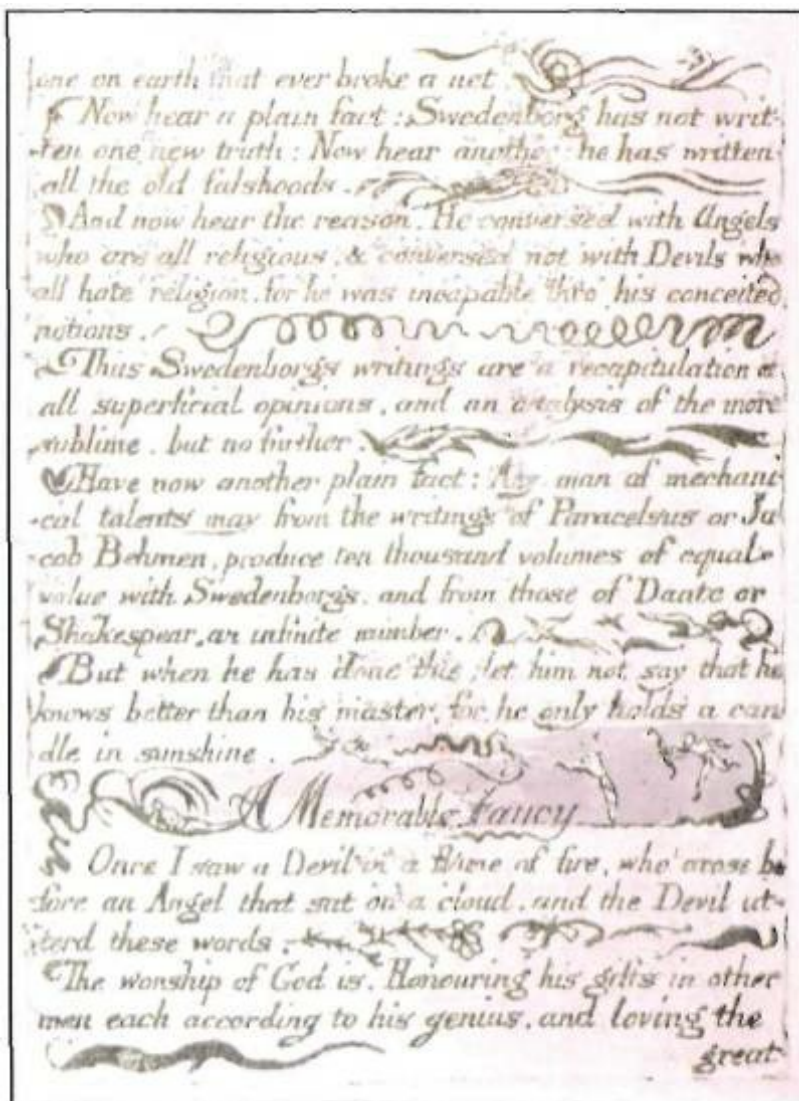 one on earth that ever broke a net.
Now hear a plain fact: Swedenborg has not writ-
-ten one new truth: Now hear another: he has written
all the old falshoods.
And now hear the reason. He conversed with Angels
who are all religious, & conversed not with Devils who
all hate religion, for he was incapable thro' his conceited
notions.
Thus Swedenborgs writings are a recapitulation of
all superficial opinions, and an analysis of the more
sublime, but no further.
Have now another plain fact: Any man of mechani-
-cal talents may from the writings of Paracelsus or Ja-
cob Behmen, produce ten thousand volumes of equal
value with Swedenborgs, and from those of Dante or
Shakespear, an infinite number.
But when he has done this, let him not say that he
knows better than his master, for he only holds a can-
dle in sunshine.
A Memorable Fancy
Once I saw a Devil in a flame of fire, who arose be-
fore an Angel that sat on a cloud, and the Devil ut-
-terd these words.
The worship of God is. Honouring his gifts in other
men each according to his genius, and loving the
great